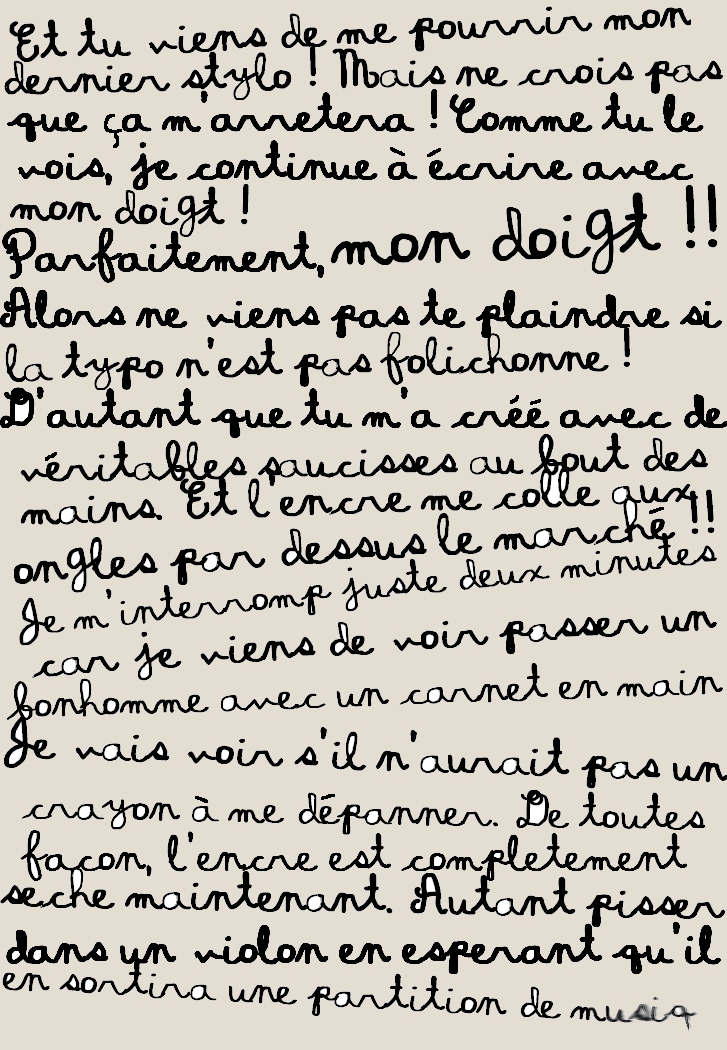 Et tu viens de me pourrir mon
dernier stylo ! Mais ne crois pas
que ça m'arretera ! Comme tu le
vois, je continue à écrire avec
mon doigt !
Parfaitement, mon doigt !!
Alors ne viens pas te plaindre si
la typo n'est pas folichonne !
D'autant que tu m'a créé avec de
véritables saucisses au bout des
mains. Et l'encre me colle aux
ongles par dessus le marché !!
Je m'interromp juste deux minutes
car je viens de voir passer un
bonhomme avec un carnet en main
Je vais voir s'il n'aurait pas un
crayon à me dépanner. De toutes
facon, l'encre est completement
seche maintenant. Autant pisser
dans un violon en esperant qu'il
en sortira une partition de musiq